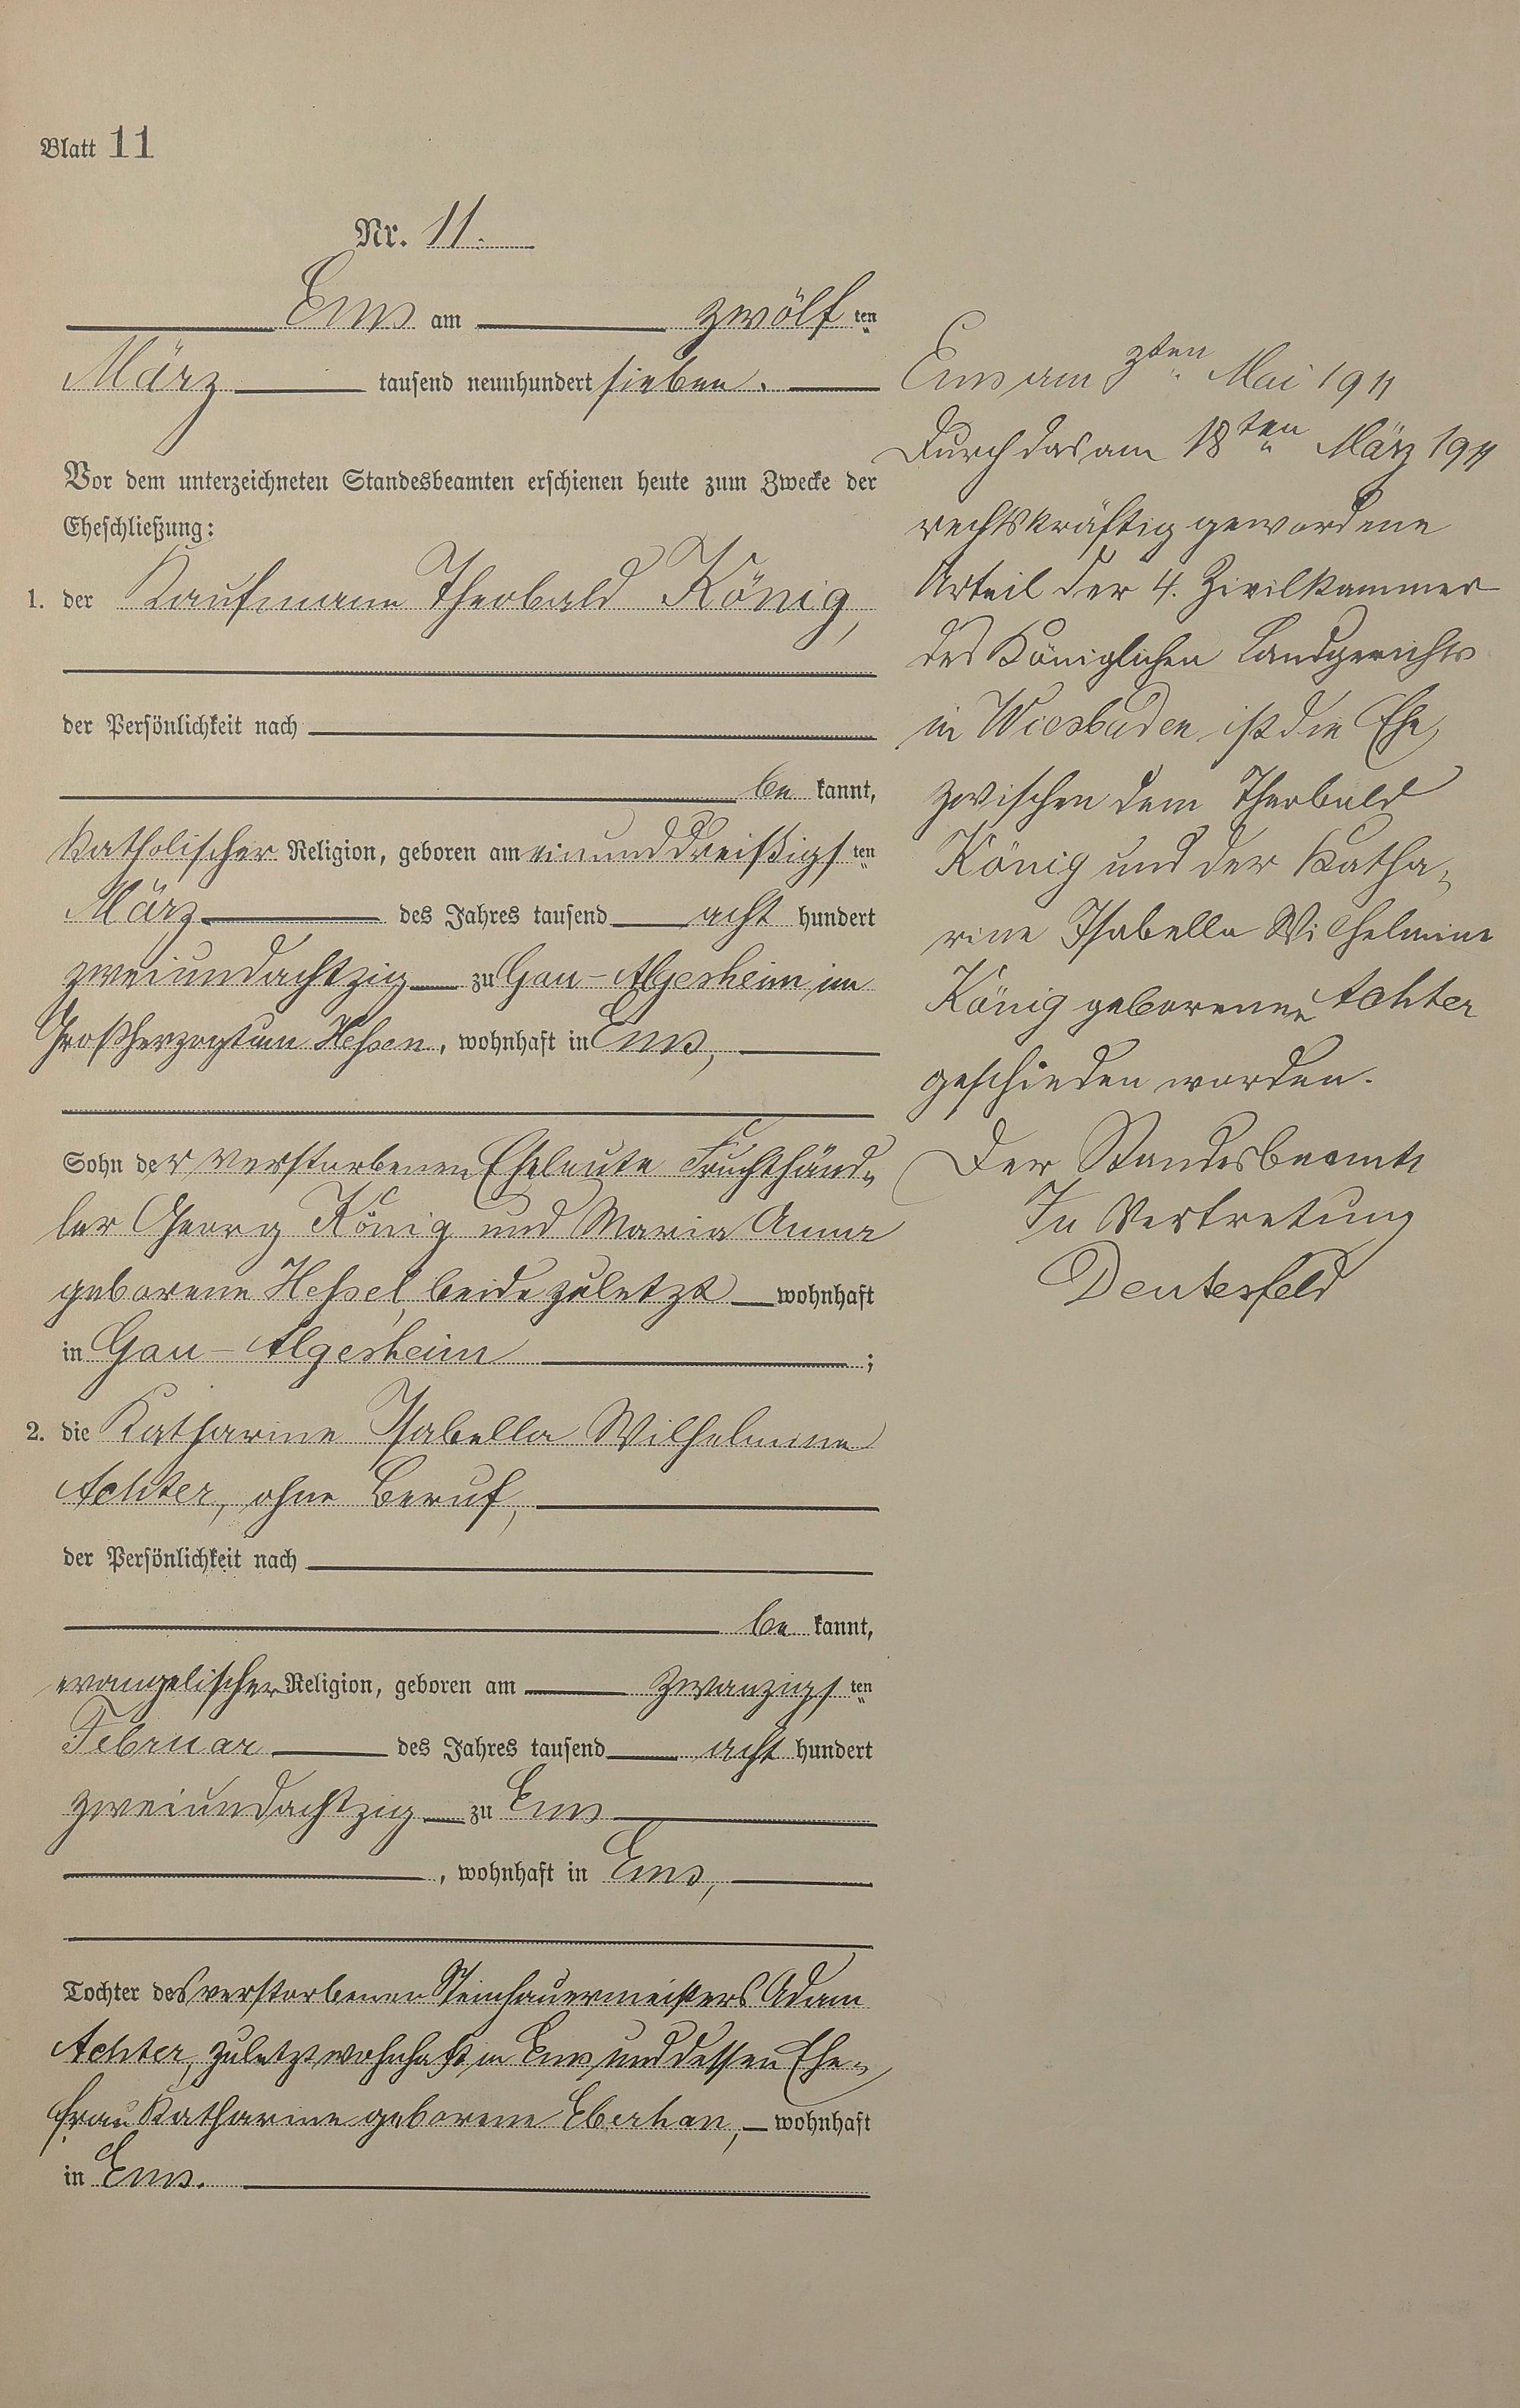 Blatt 11
Nr. 11.
Ems am zwölf ten
März tausend neunhundert sieben.
Vor dem unterzeichneten Standesbeamten erschienen heute zum Zwecke der
Eheschließung:
1. der Kaufmann Theobald König,
der Persönlichkeit nach
be kannt,
katholischer Religion, geboren am einunddreißigs ten
März des Jahres tausend acht hundert
zweiundachtzig zu Gau-Algesheim im
Großherzogtum Hessen, wohnhaft in Ems,
Sohn der verstorbenen Eheleute Fruchthänd=
ler Georg König und Maria Anna
geborene Hessel, beide zuletzt wohnhaft
in Gau-Algesheim ;
2. die Katharine Isabella Wilhelmine
Achter, ohne Beruf,
der Persönlichkeit nach
be kannt,
evangelischer Religion, geboren am zwanzigs ten
Februar des Jahres tausend acht hundert
zweiundachtzig zu Ems
, wohnhaft in Ems,
Tochter des verstorbenen Steinhauermeisters Adam
Achter, zuletzt wohnhaft in Ems und dessen Ehe=
frau Katharine geborene Eberhan, wohnhaft
in Ems.
Ems am ten Mai 1911
Durch das am 18ten März 1911
rechtskräftig gewordene
Urteil der 4. Zivilkammer
des Königlichen Landgerichts
in Wiesbaden ist die Ehe
zwischen dem Theobald
König und der Katha=
rine Isabella Wilhelmine
König geborenen Achter
geschieden worden.
Der Standesbeamte
In Vertretung
Deutesfeld